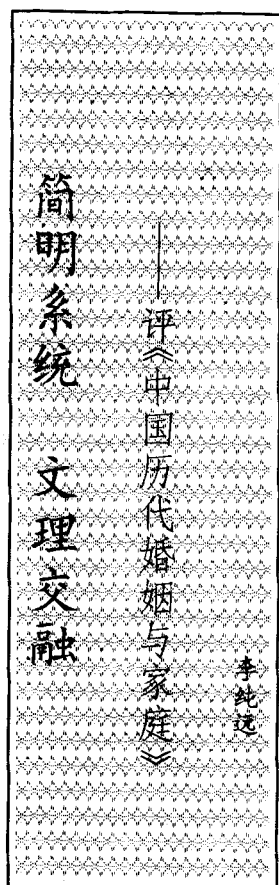 简明系统 文理交融
——评《中国历代婚姻与家庭》
李纯远